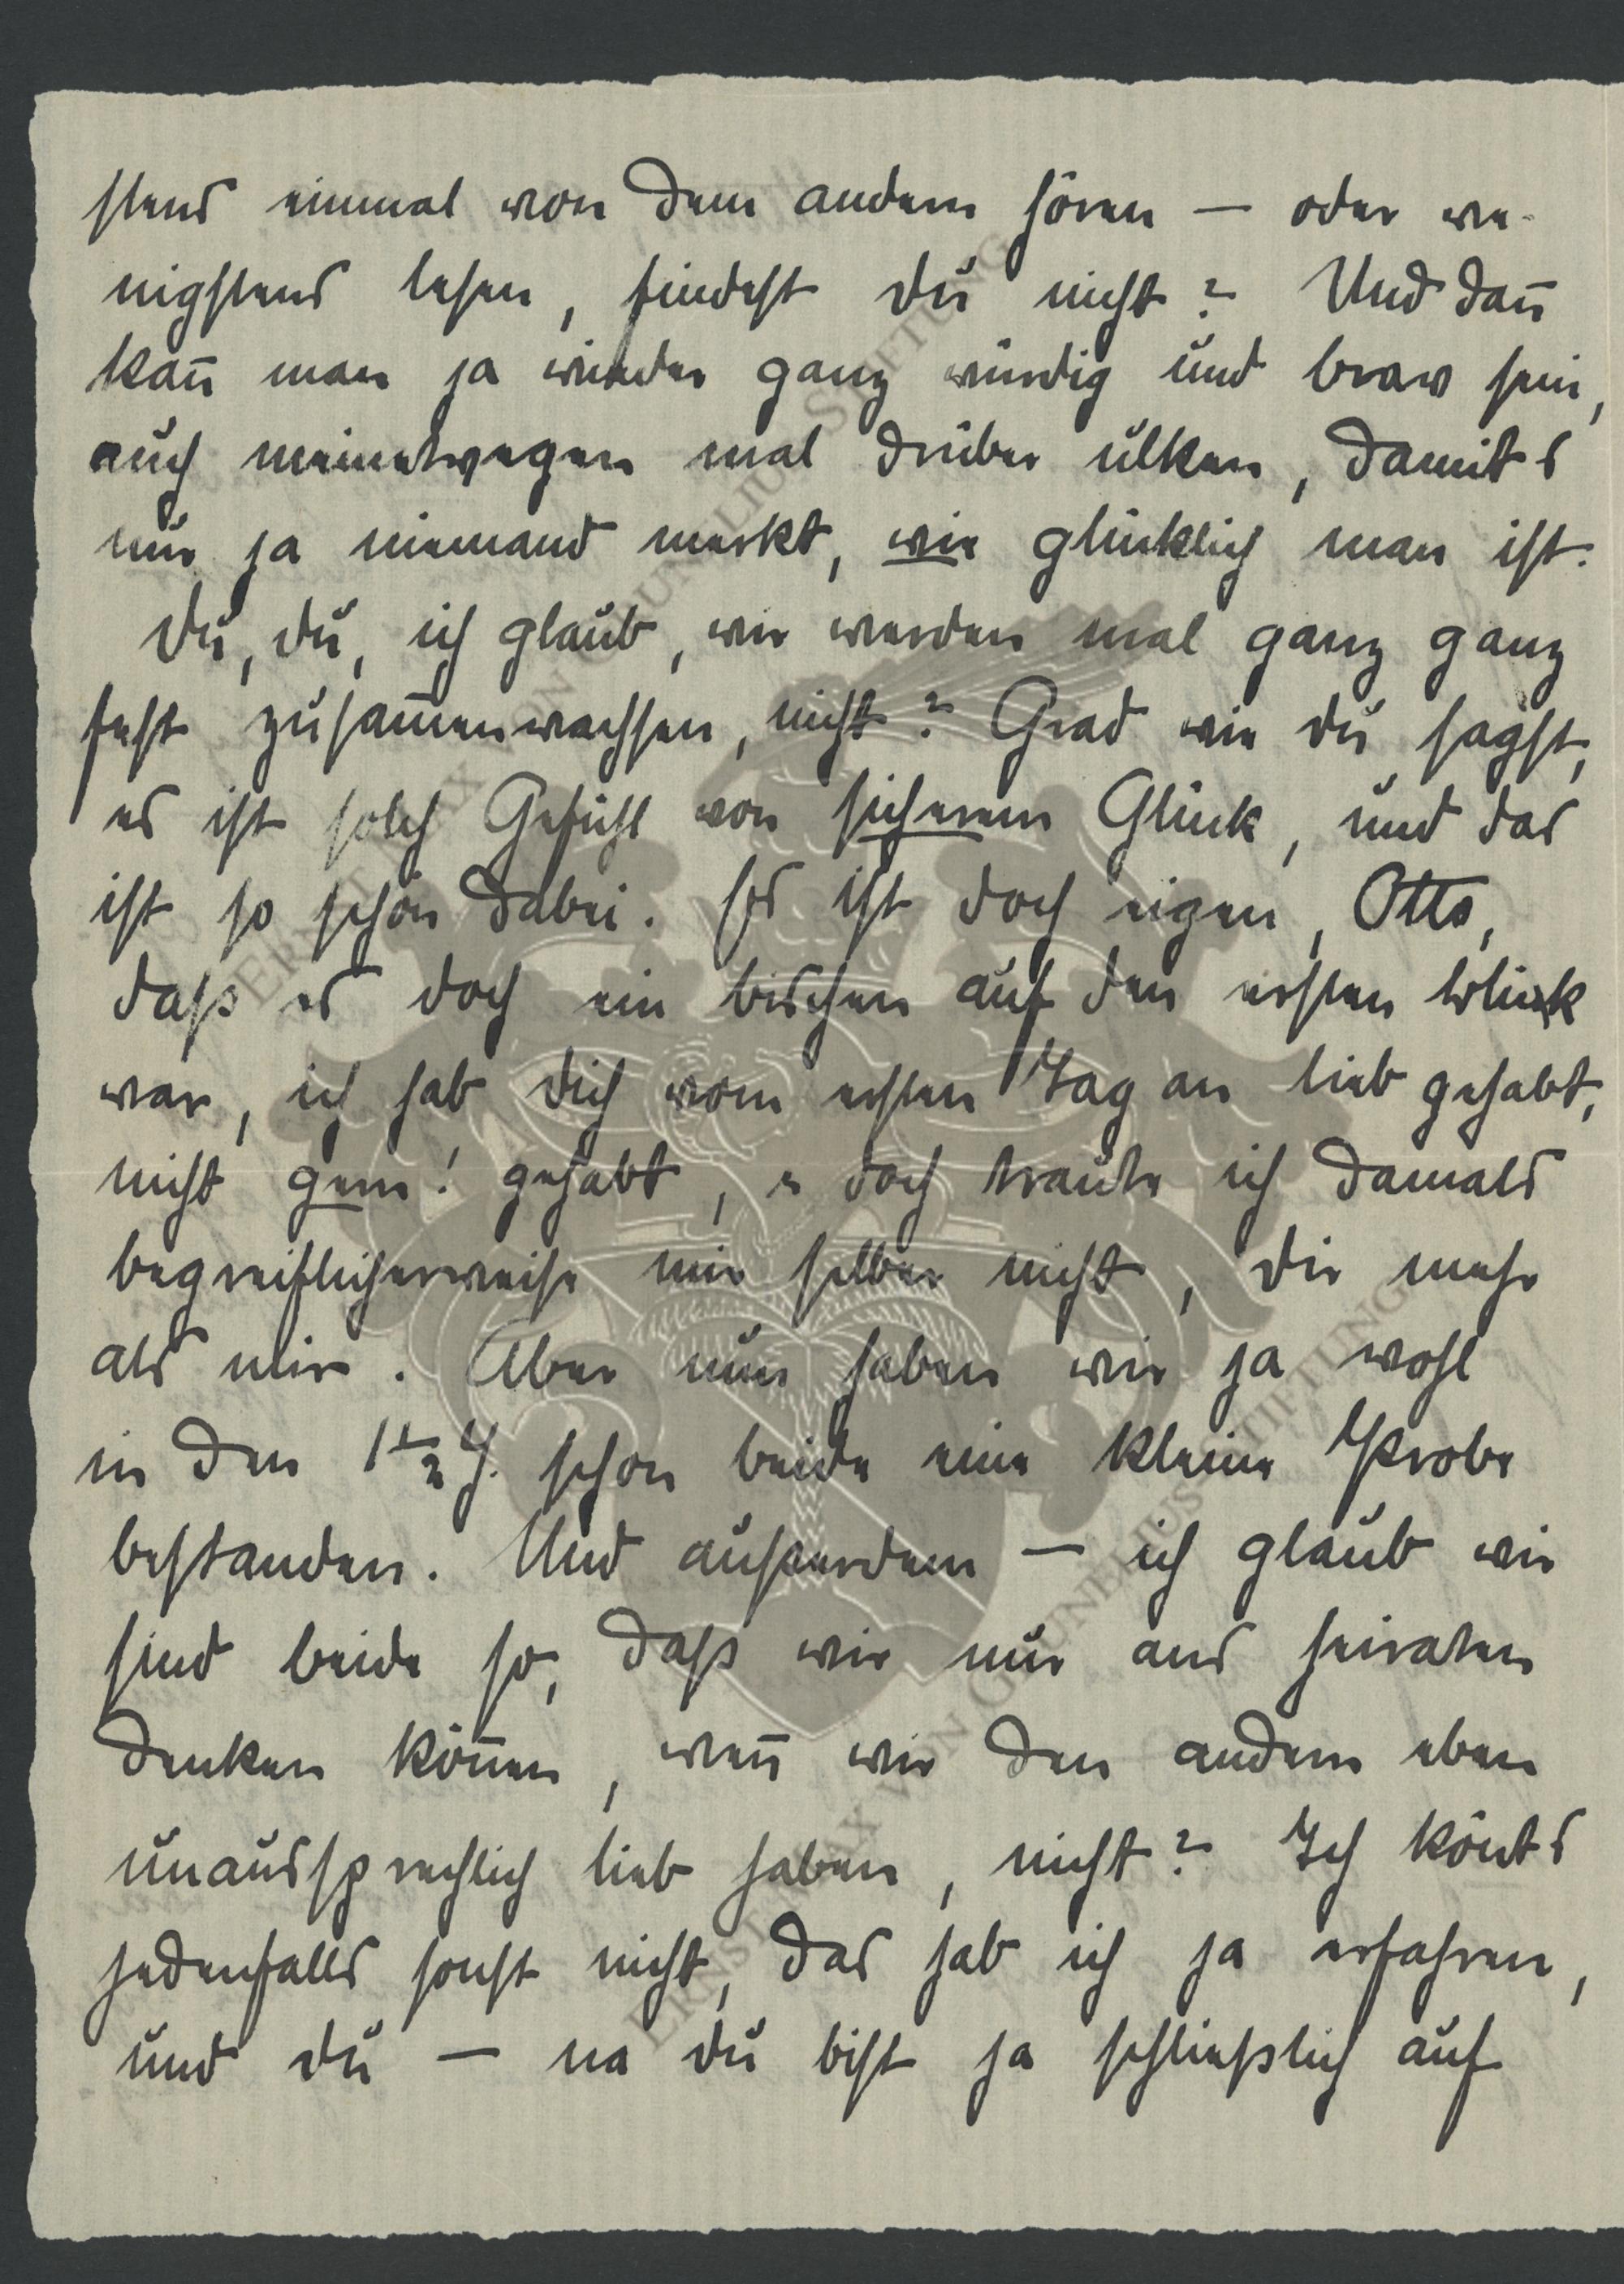 stens einmal von dem andern hören — oder we-
nigstens lesen, findest du nicht? Und dan̄
kan̄ man ja wieder ganz würdig und brav sein,
auch meinetwegen mal drüber ulken, damits
nur ja niemand merkt, wie glücklich man ist.
Du, du, ich glaub, wir werden mal ganz ganz
fest zusam̄enwachsen, nicht? Grad wie du sagst,
es ist solch Gefühl von sicherem Glück, und das
ist so schön dabei. Es ist doch eigen, Otto,
daß es doch ein bischen auf den ersten Blick
war, ich hab dich vom ersten Tag an lieb gehabt,
nicht gern! gehabt, u doch traute ich damals
begreiflicherweise mir selber nicht, dir mehr
als mir. Aber nun haben wir ja wohl
in den 1½ J. schon beide eine kleine Probe
bestanden. Und außerdem — ich glaub wir
sind beide so, daß wir nur ans heiraten
denken kön̄en, wen̄ wir den andern eben
unaussprechlich lieb haben, nicht? Ich kön̄ts
jedenfalls sonst nicht, das hab ich ja erfahren,
und du — na du bist ja schließlich auf
ERNST MAX VON GRUNELIUS STIFTUNG
ERNST MAX VON GRUNELIUS STIFTUNG